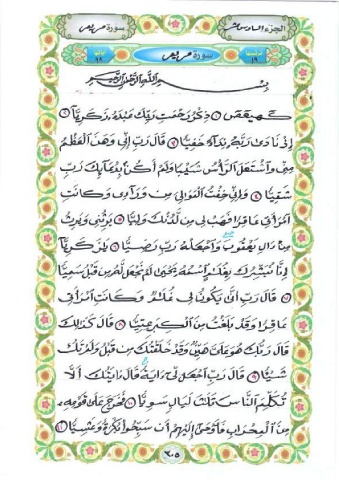 سورة مريم
الجزء السادس عشر
سورة مريم
١٩
٩٨
بسم الله الرحمن الرحيم
كهيعص ۝ ذكر رحمت ربك عبده زكريا
إذ نادى ربه نداء خفيا ۝ قال رب إني وهن العظم
مني واشتعل الرأس شيبا ولم أكن بدعائك رب
شقيا ۝ وإني خفت الموالي من وراءي وكانت
امرأتي عاقرا فهب لي من لدنك وليا ۝ يرثني ويرث
من ءال يعقوب واجعله رب رضيا ۝ يزكريا
إنا نبشرك بغلم اسمه يحيى لم نجعل له من قبل سميا
۝ قال رب أنى يكون لي غلم وكانت امرأتي
عاقرا وقد بلغت من الكبر عتيا ۝ قال كذلك
قال ربك هو علي هين وقد خلقتك من قبل ولم تك
شيئا ۝ قال رب اجعل لي ءاية قال ءايتك ألا
تكلم الناس ثلث ليال سويا ۝ فخرج على قومه
من المحراب فأوحى إليهم أن سبحوا بكرة وعشيا
٣٠٥